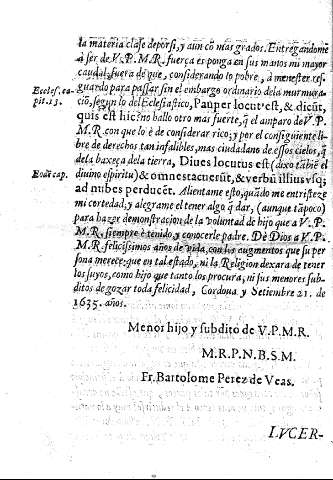 la materia clase de por si, y aun cō mas grados. Entregandome
à ser de V. P. M. R. fuerça es ponga en sus manos mi mayor
caudal, fuera de que, considerando lo pobre, à menester res
guardo para passar sin el embargo ordinario de la murmura
Eccles. ca-
pit. 13.
ciō, segun lo del Eclesiastico, Pauper locut᷒ est, & dicūt,
quis est hic? no hallo otro mas fuerte, q̄ el amparo de V. P.
M. R. con que lo è de considerar rico; y por el consiguiente li-
bre de derechos tan infalibles, mas ciudadano de essos cielos, q̄
de la baxeça de la tierra, Diues locutus est (dixo tābiē el
Eodē cap.
diuino espiritu) & omnes tacuerūt, & verbū illius vsq;
ad nubes perducēt. Alientame esto, quādo me entristeze
mi cortedad; y alegrame el tener algo q̄ dar, (aunque tāpoco)
para hazer demonstracion de la voluntad de hijo que a V. P.
M. R. siempre è tenido, y conocerle padre. De Dios a V. P.
M. R. felicissimos años de vida, con los augmentos que su per
sona merece: que en tal estado, ni la Religion dexara de tener
los suyos, como hijo que tanto los procura, ni sus menores sub-
ditos de gozar toda felicidad, Cordoua y Setiembre 21. de
1635. años.
Menor hijo y subdito de V. P. M. R.
M. R. P. N. B. S. M.
Fr. Bartolome Perez de Veas.
LVCER-